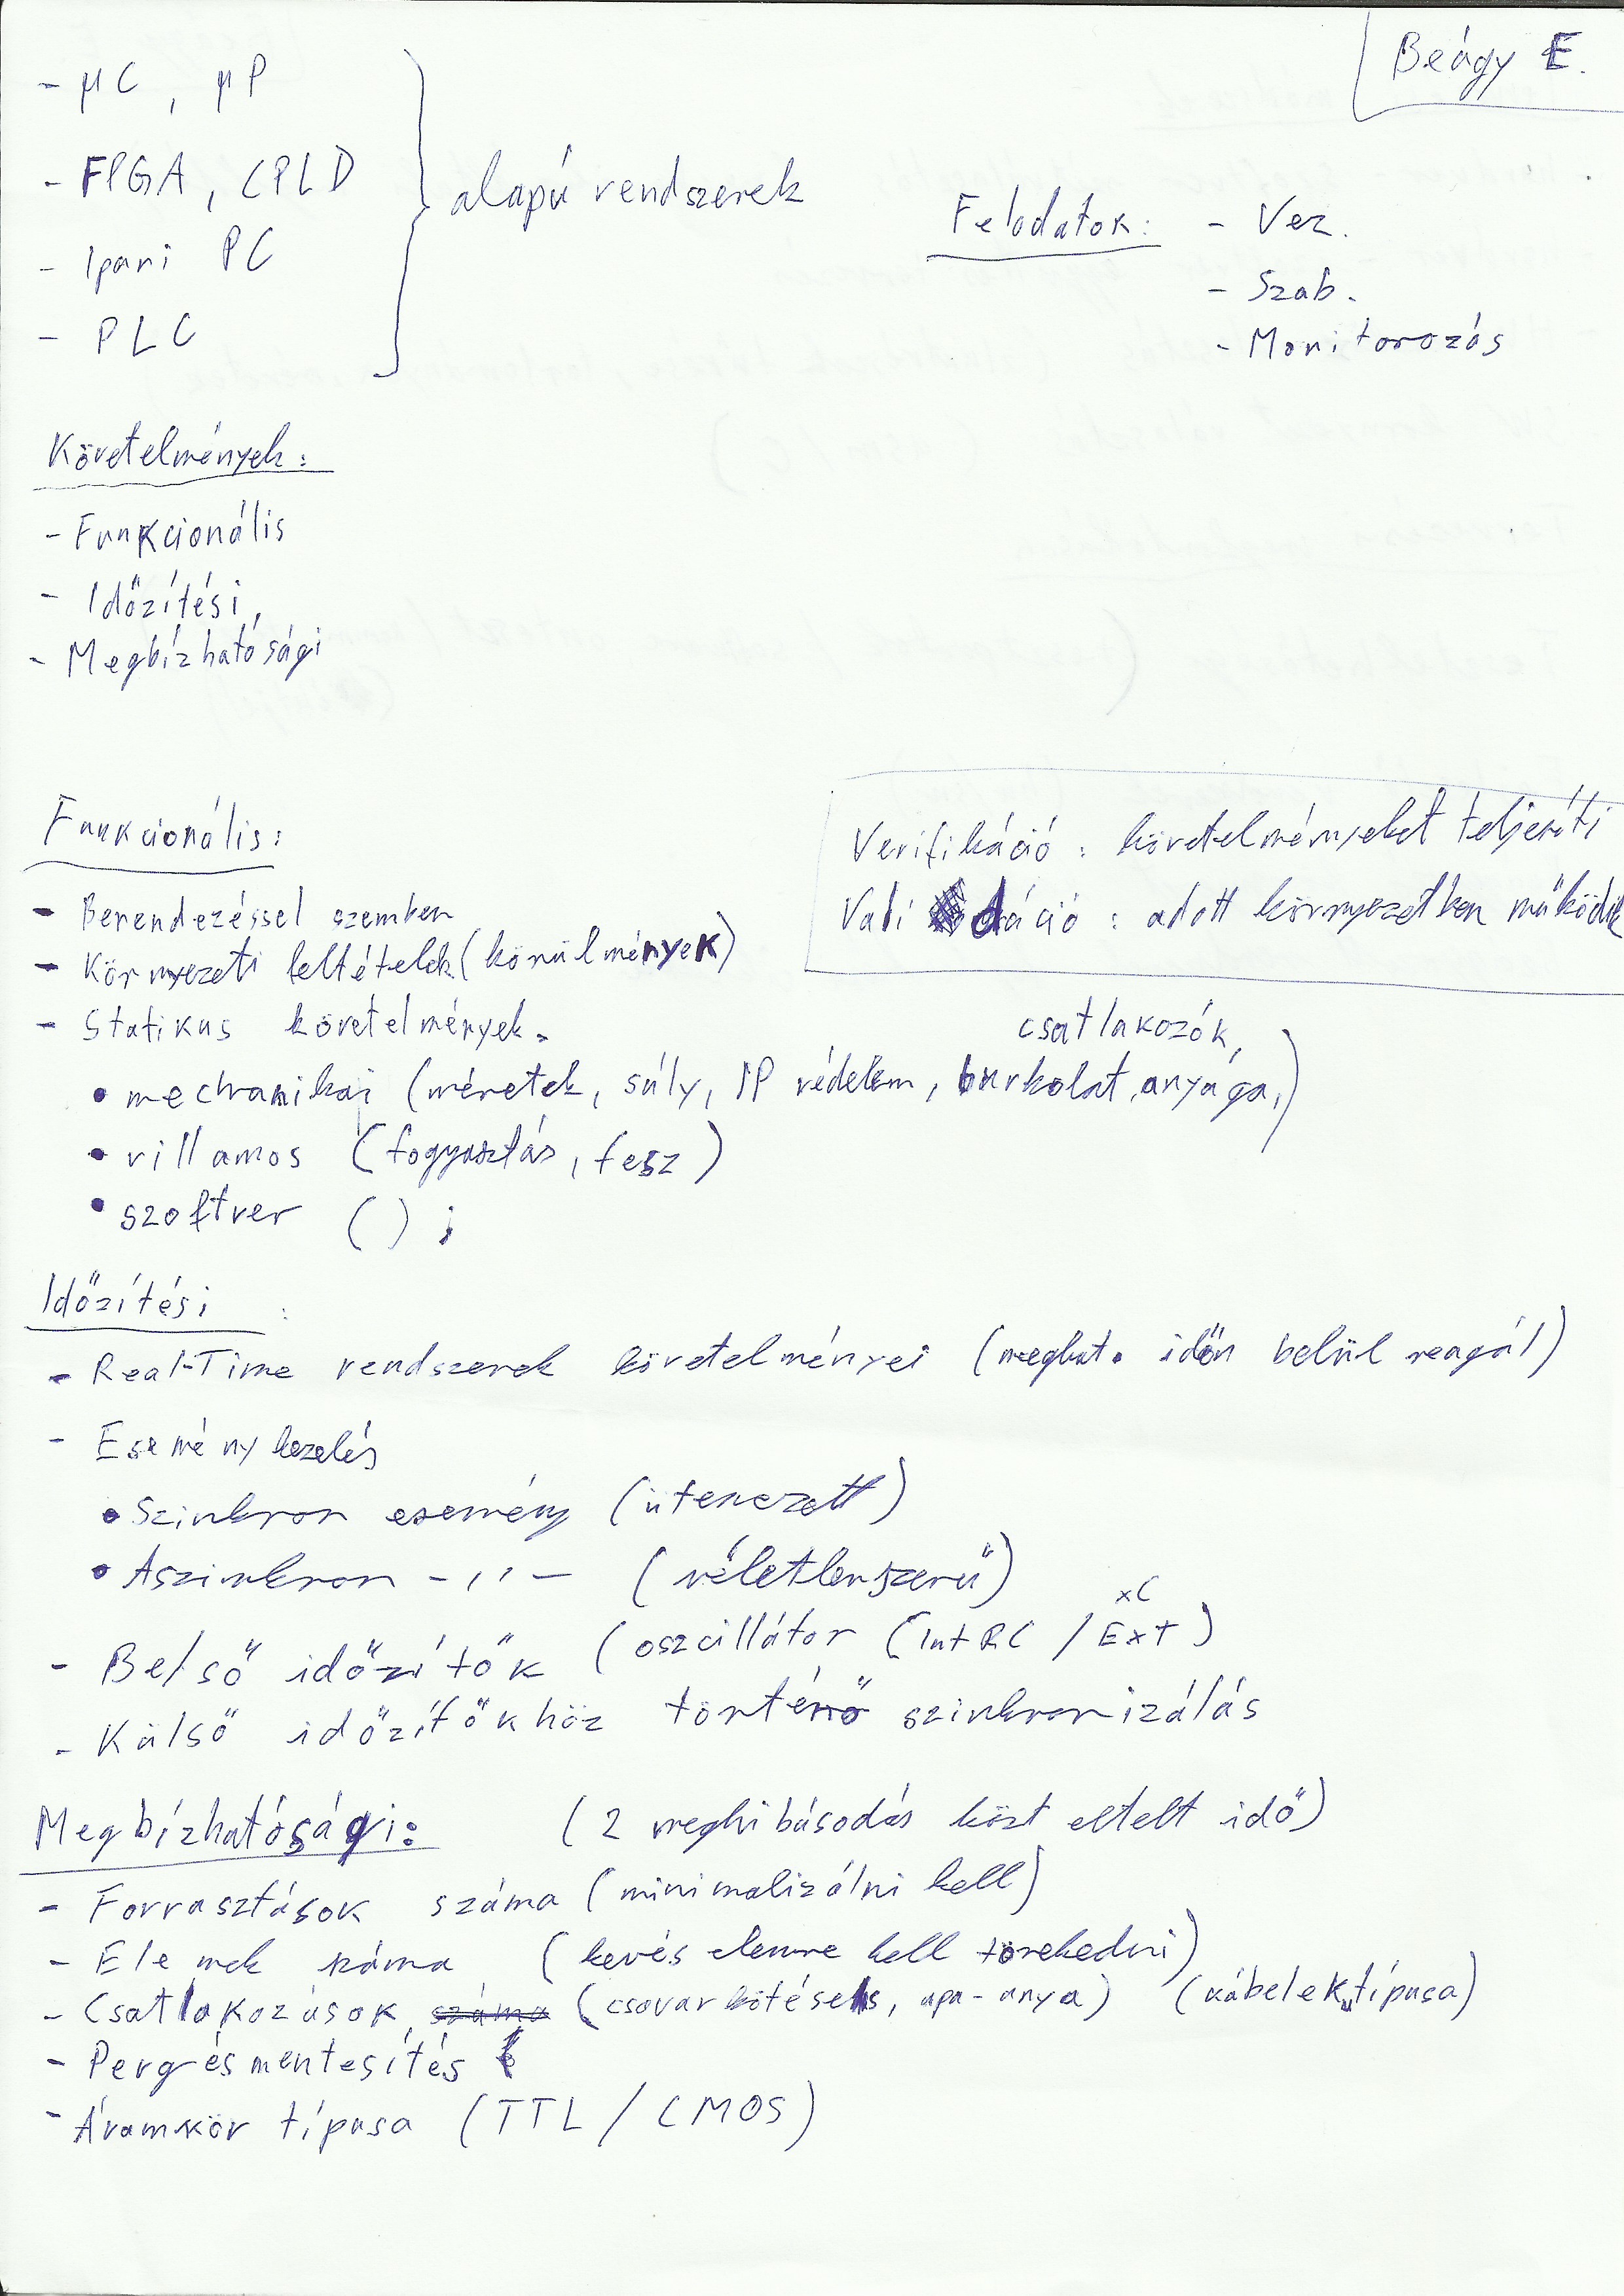 Beágy E.
- µC, µP
- FPGA, CPLD
- Ipari PC
- PLC
alapú rendszerek
Feladatok:
- Vez.
- Szab.
- Monitorozás
Követelmények:
- Funkcionális
- Időzítési,
- Megbízhatósági
Funkcionális:
- Berendezéssel szemben
- Környezeti feltételek (körülmények)
- Statikus követelmények.
• mechanikai (méretek, súly, IP védelem, burkolat anyaga, csatlakozók,)
• villamos (fogyasztás, fesz)
• szoftver ( ) ;
Verifikáció : követelményeket teljesíti
Validáció : adott környezetben működik
Időzítési :
- Real-Time rendszerek követelményei (meghat. időn belül reagál)
- Esemény kezelés
• Szinkron esemény (ütemezett)
• Aszinkron - ,, - (véletlenszerű)
- Belső időzítők (oszcillátor (Int RC / Ext xC)
- Külső időzítőkhöz történő szinkronizálás
Megbízhatósági: (2 meghibásodás közt eltelt idő)
- Forrasztások száma (minimalizálni kell)
- Elemek száma (kevés elemre kell törekedni)
- Csatlakozások, száma (csavarkötéses, apa-anya) (kábelek típusa)
- Pergésmentesítés
- Áramkör típusa (TTL / CMOS)